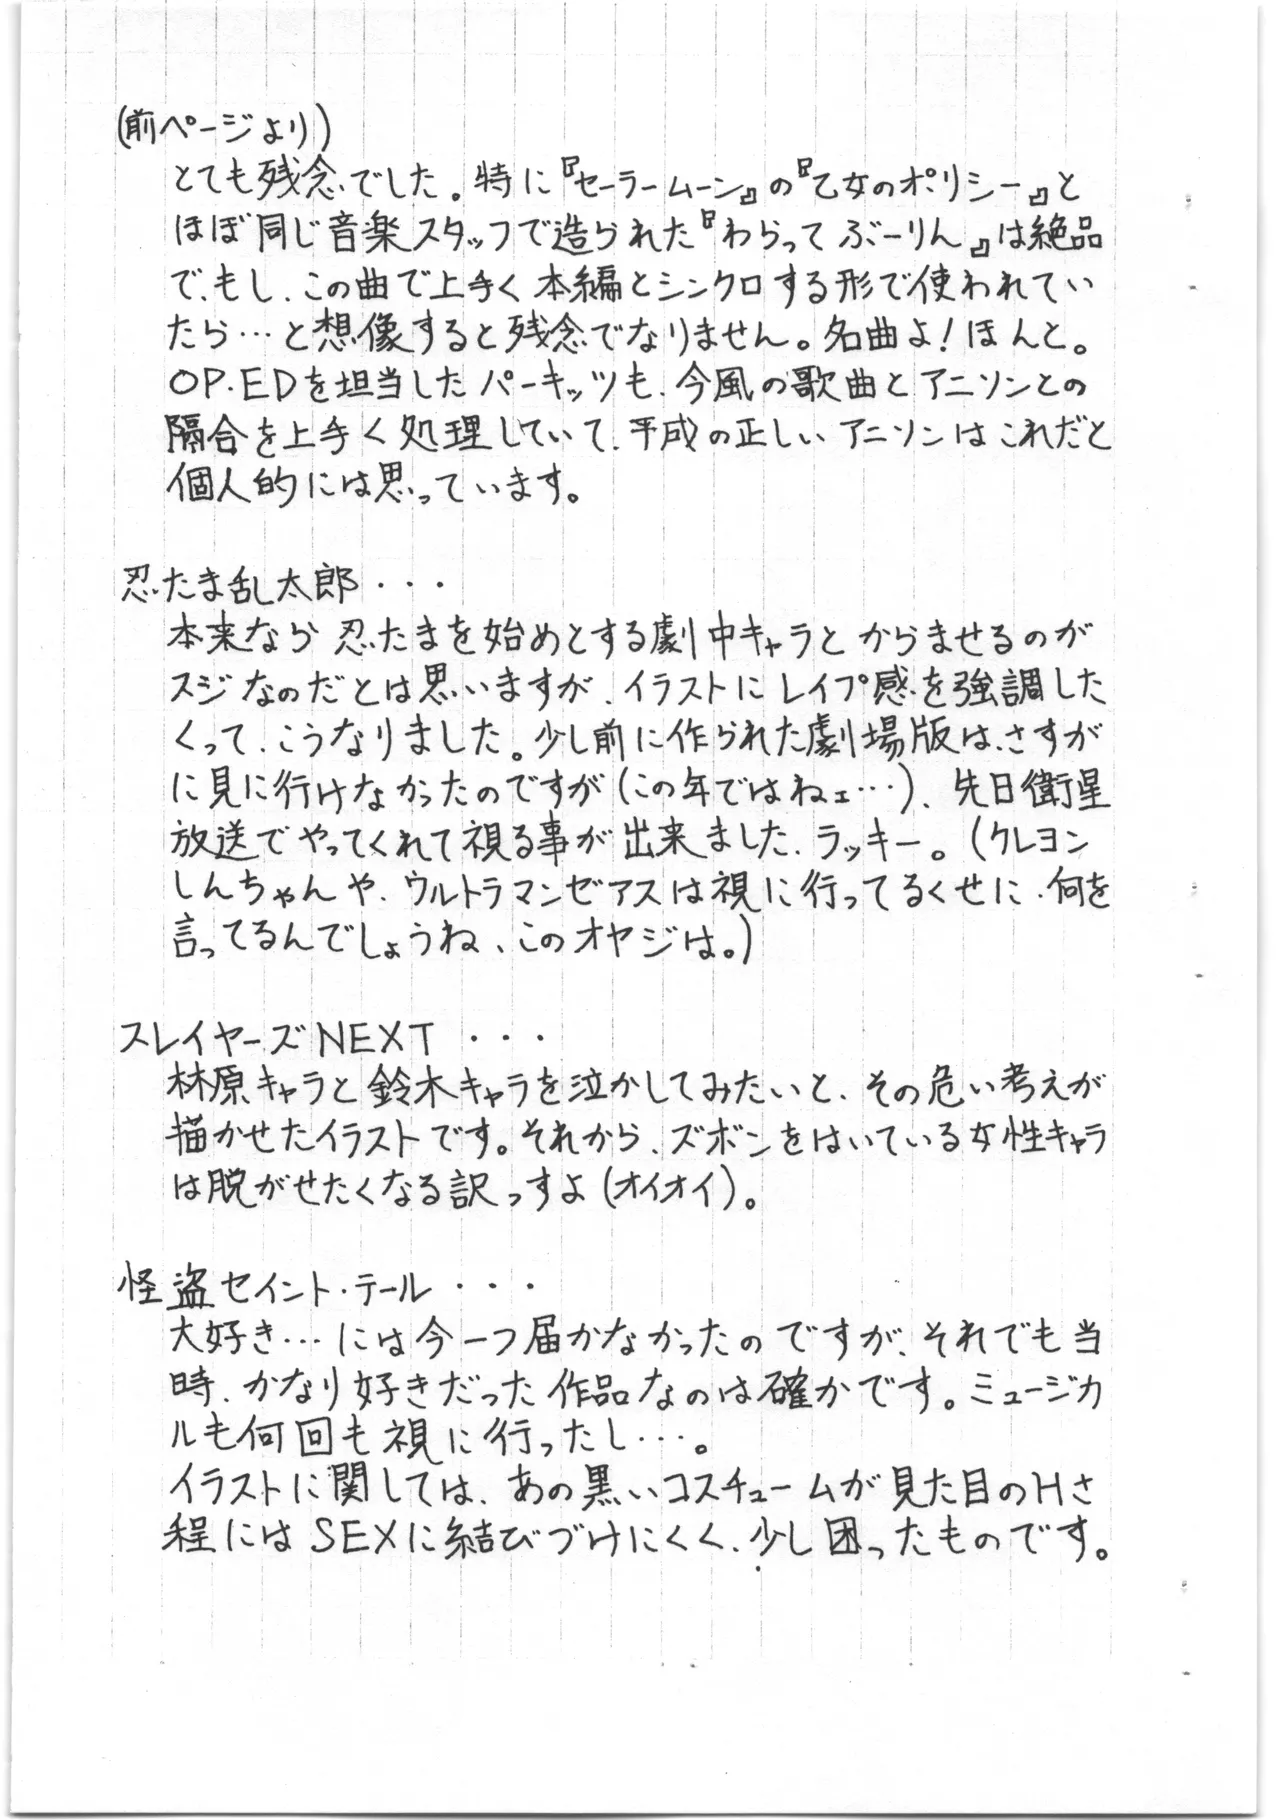 (前ページより)
とても残念でした。特に『セーラームーン』の『乙女のポリシー』と
ほぼ同じ音楽スタッフで造られた『わらってぶーりん』は絶品
で、もし、この曲で上手く本編とシンクロする形で使われてい
たら…と想像すると残念でなりません。名曲よ!ほんと。
OP.EDを担当したパーキッツも、今風の歌曲とアニソンとの
隔合を上手く処理していて、平成の正しいアニソンはこれだと
個人的には思っています。
忍たま乱太郎・・・
本来なら忍たまを始めとする劇中キャラとからませるのが
スジなのだとは思いますが、イラストにレイプ感を強調した
くって、こうなりました。少し前に作られた劇場版は、さすが
に見に行けなかったのですが(この年ではねェ…)、先日衛星
放送でやってくれて視る事が出来ました、ラッキー。(クレヨン
しんちゃんや、ウルトラマンゼアスは視に行ってるくせに、何を
言ってるんでしょうね、このオヤジは。)
スレイヤーズNEXT・・・
林原キャラと鈴木キャラを泣かしてみたいと、その危い考えが
描かせたイラストです。それから、ズボンをはいている女性キャラ
は脱がせたくなる訳っすよ(オイオイ)。
怪盗セイント・テール・・・
大好き…には今一つ届かなかったのですが、それでも当
時、かなり好きだった作品なのは確かです。ミュージカ
ルも何回も視に行ったし…。
イラストに関しては、あの黒いコスチュームが見た目のHさ
程にはSEXに結びづけにくく、少し困ったものです。